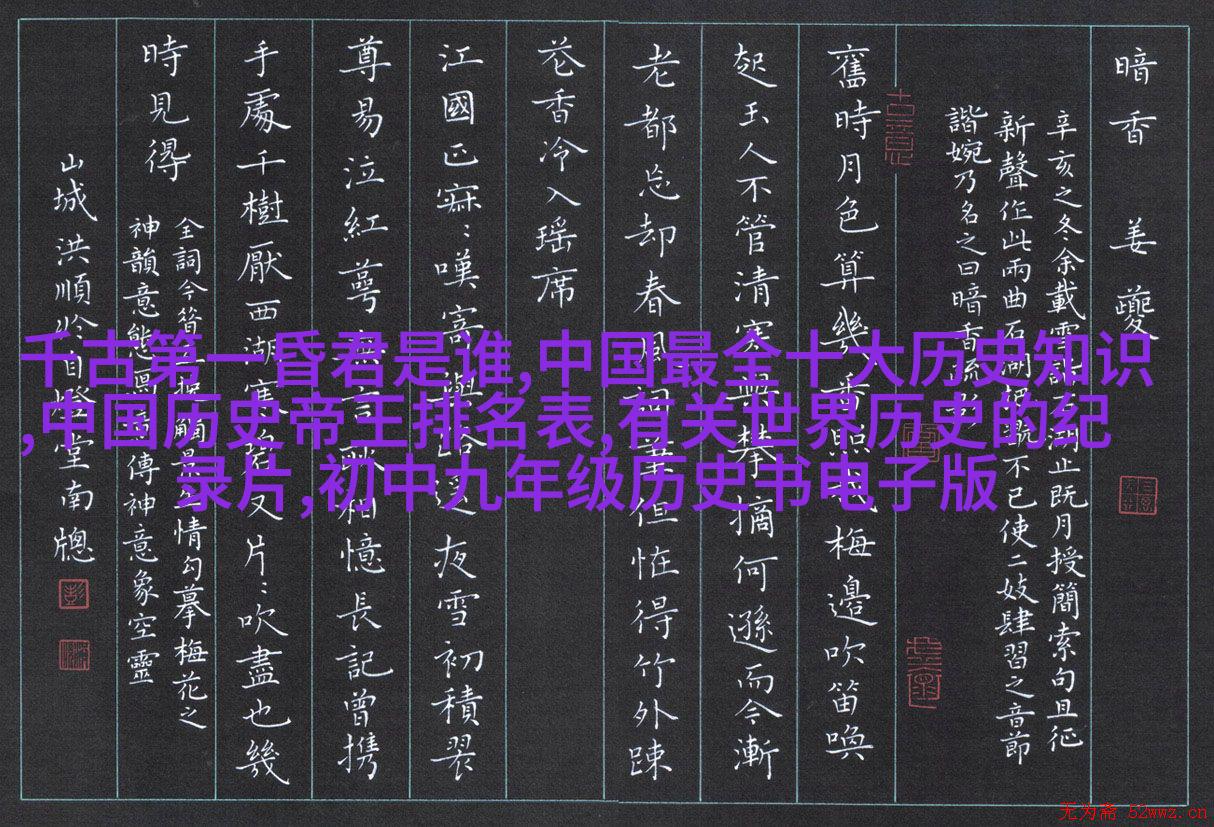 暗香 姜夔
辛亥之冬余載雪
止既月授簡索句且征
新聲作此兩曲石湖把
不已使二妓肆習之音節
諧婉乃名之曰暗香
舊時月色算幾
梅邊吹笛喚
起玉人不管清寒與攀摘何遜而今漸
老都忘却春風詞筆但恠得竹外踈
花香冷入瑶席
江國正寂〻嘆寄與路遥夜雪初積翠
尊易泣紅萼無言耿相憶長記曾携
手處千樹壓西湖寒碧又片〻吹盡也幾
時見得
全詞今昔
情勾摹梅花之
神韻意態寫
傳神意象空靈
山城洪順
自
堂南牕
古意
千古第一昏君是谁,中国最全十大历史知识
,中国历史帝王排名表,有关世界历史的纪
录片,初中九年级历史书电子版
无为斋 52wwz.cn